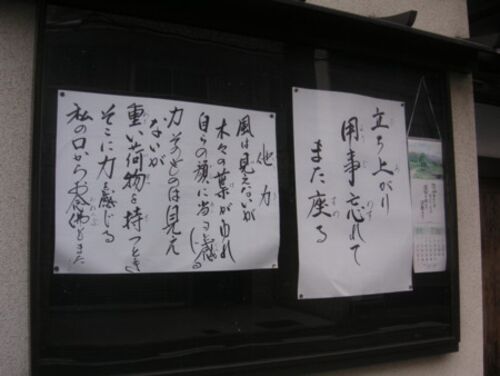 立ち上がり
用事忘れて
また座る
他力
風は見えないが
木々の葉がゆれ
自らの頬に当ると感じる
力そのものは見え
ないが
重い荷物を持つとき
そこに力を感じる
私の口からお念佛もまた